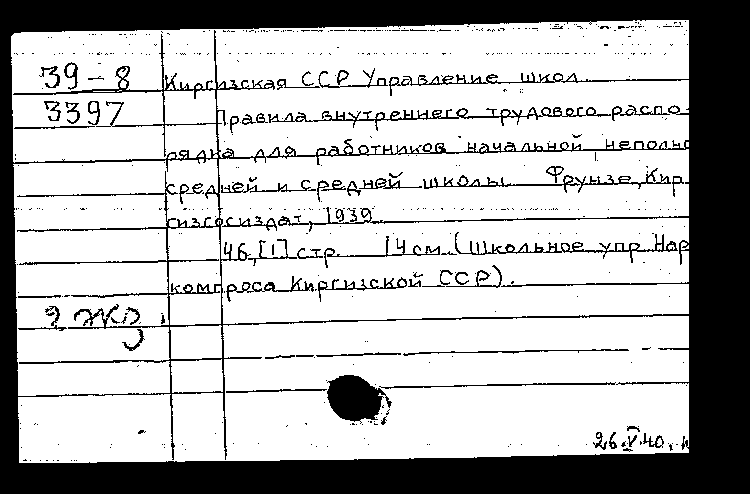 39-8 Киргизская ССР Управление школ.
3397 Правила внутреннего трудового распо-
рядка для работников начальной неполно
средней и средней школы. Фрунзе, Кир
гизгосиздат, 1939.
46,[1] стр. 14 см. (Школьное упр. Нар
компроса Киргизской ССР).
2 экз.
26.V.40.